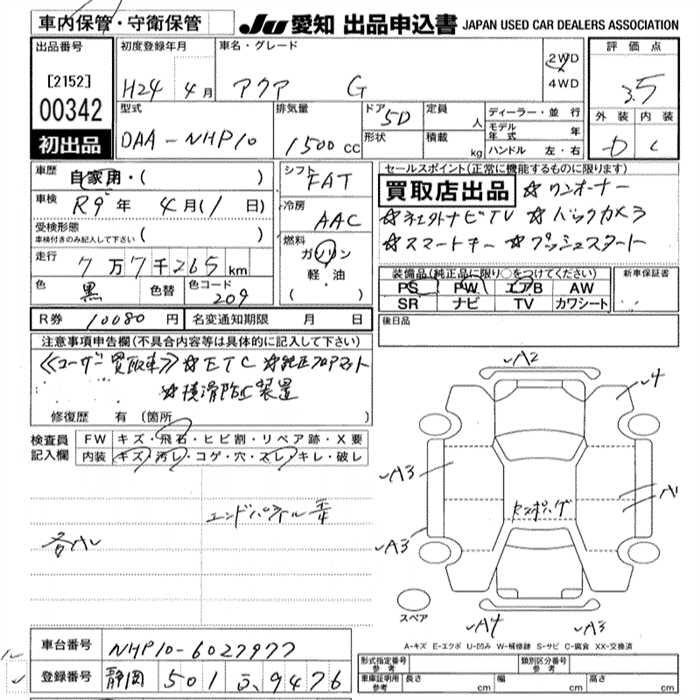 車内保管・守衛保管
JU 愛知 出品申込書 JAPAN USED CAR DEALERS ASSOCIATION
出品番号
[2152]
00342
初出品
初度登録年月
H24 4月
車名・グレード
アクア G
2WD
4WD
評価点
3.5
外装 内装
D C
型式
DAA-NHP10
排気量
1500 CC
ドア 5D
形状
定員 人
積載 kg
ディーラー・並行
モデル年式 年
ハンドル 左・右
車歴 自家用・( )
車検 R9年 4月(1日)
受検形態
車検付きのみ記入して下さい ( )
走行 7万7千265km
色 黒 色替 色コード 209
シフト FAT
冷房 AAC
燃料 ガソリン
軽・油
( ・ )
セールスポイント(正常に機能するものに限ります)
買取店出品 ☆ワンオーナー
☆ネクストナビTV ☆バックカメラ
☆スマートキー ☆プッシュスタート
装備品(純正品に限り○をつけてください)
PS PW エアB AW
SR ナビ TV カワシート
新車保証書
R券 10080円 名変通知期限 月 日
後日品
注意事項申告欄(不具合内容等は具体的に記入して下さい)
《ユーザー買取車》☆ETC ☆純正フロアマット
☆横滑防止装置
修復歴 有 (箇所 )
検査員記入欄
FW キズ・飛石・ヒビ割・リペア跡・X要
内装 キズ・汚レ・コゲ・穴・スレ・キレ・破レ
各AU
A2
A3
A3
A4
A3
スペア
A-キズ E-エクボ U-凹み W-補修跡 S-サビ C-腐食 XX-交換済
車台番号 NHP10-6027977
登録番号 静岡 501 ふ 9476
形式指定番号 参考
類別区分番号 参考
車庫証明用 参考 長さ cm 幅 cm 高さ cm